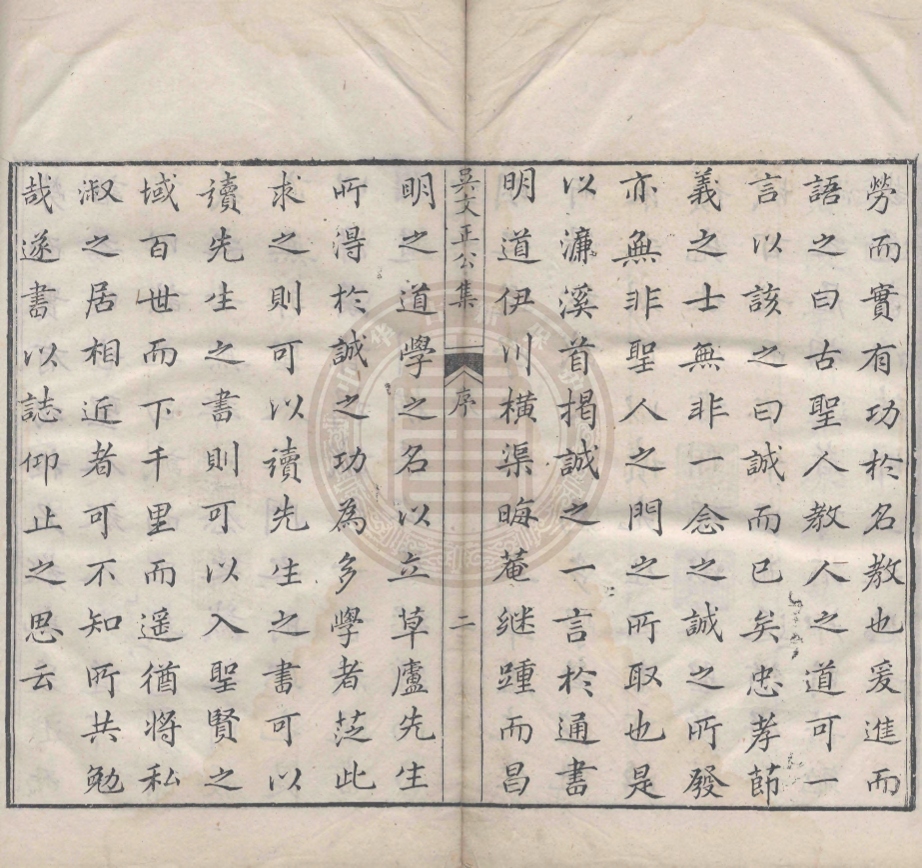 勞而實有功於名教也爰進而
語之曰古聖人教人之道可一
言以該之曰誠而已矣忠孝節
義之士無非一念之誠之所發
亦無非聖人之門之所取也是
以濂溪首揭誠之一言於通書
明道伊川橫渠晦菴继踵而昌
吳文正公集 序 二
明之道學之名以立草廬先生
所得於誠之功為多學者茫此
求之則可以讀先生之書可以
讀先生之書則可以入聖賢之
域百世而下千里而遥猶將私
淑之居相近者可不知所共勉
哉遂書以誌仰止之思云